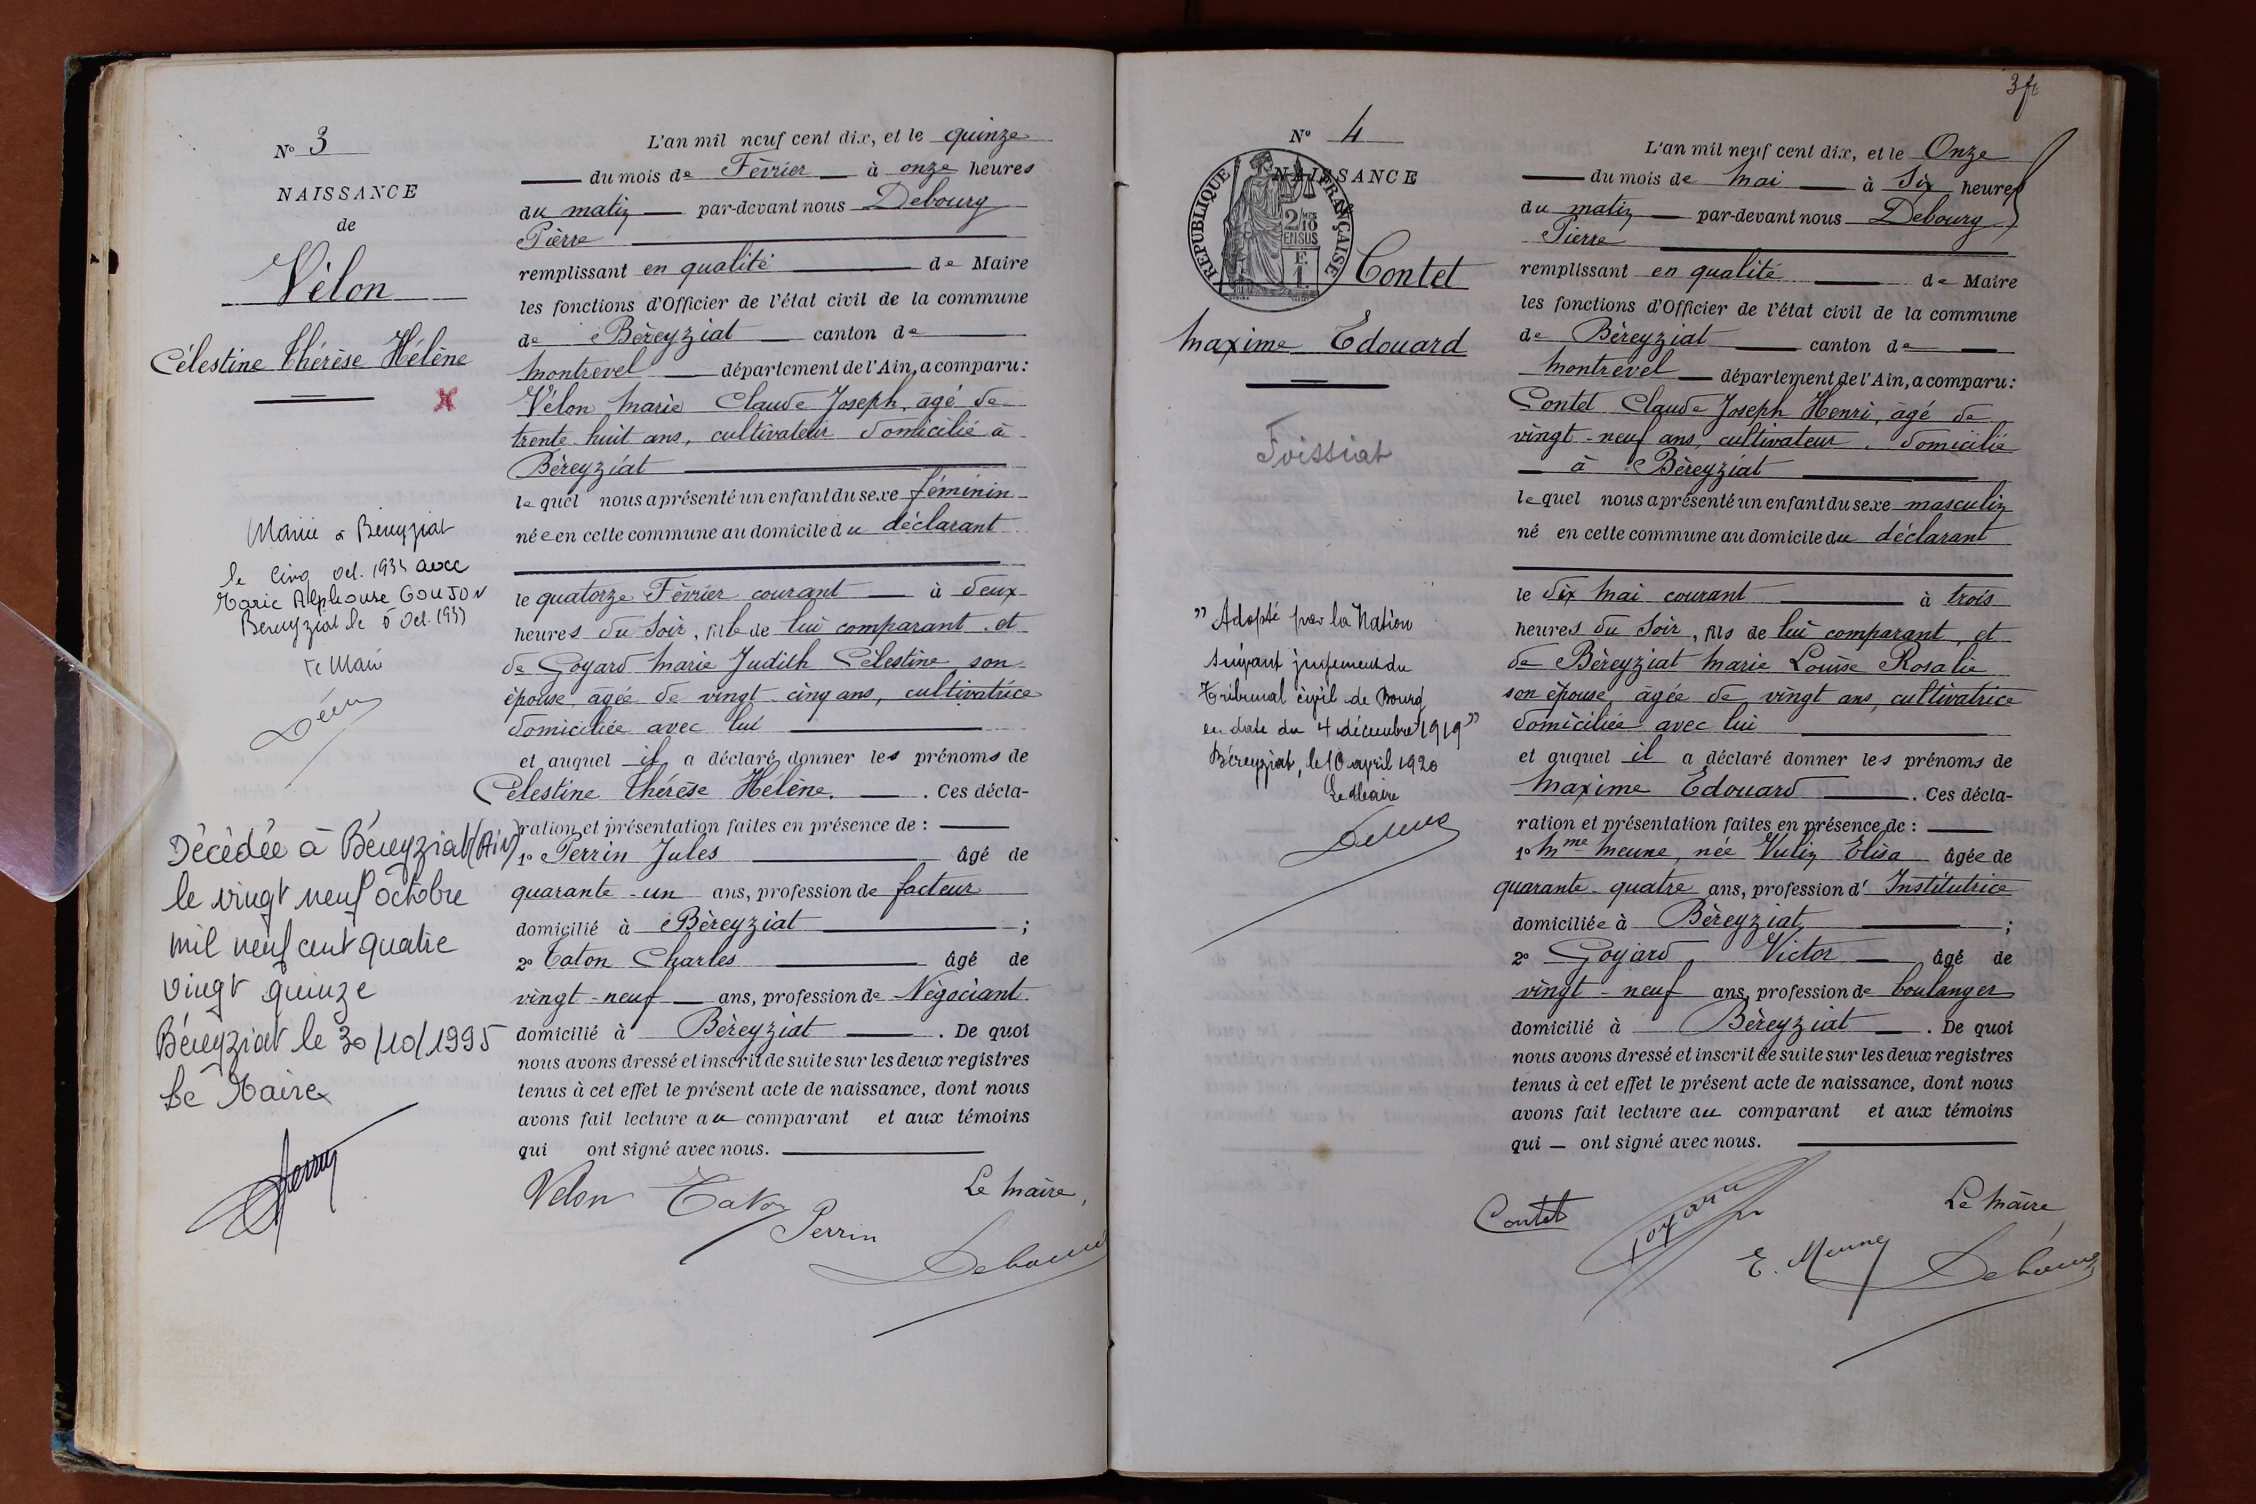 N° 3
NAISSANCE
de
Vélon
Célestine Thérèse Hélène
X
Mariée à Béreyziat
le cinq oct. 1935 avec
Marie Alphonse GOUJON
Béreyziat le 5 Oct. 1935
Le Maire
Décèdée à Béreyziat (Ain)
le vingt neuf octobre
mil neuf cent quatre
vingt quinze
Béreyziat le 30/10/1995
Le Maire
L'an mil neuf cent dix, et le quinze
du mois de Fèvrier à onze heures
du matin par-devant nous Debourg
Pièrre
remplissant en qualité de Maire
les fonctions d'Officier de l'état civil de la commune
de Bèreyziat canton de
Montrevel département de l'Ain, a comparu:
Vélon Marie Claude Joseph, âgé de
trente huit ans, cultivateur domicilié à
Bèreyziat
lequel nous a présenté un enfant du sexe féminin
née en cette commune au domicile du déclarant
le quatorze Fèvrier courant à deux
heures du Soir, fille de lui comparant et
de Goyard Marie Judith Célestine, son
épouse, âgée de vingt cinq ans, cultivatrice
domiciliée avec lui
et auquel il a déclaré donner les prénoms de
Célestine Thérèse Hélène. Ces décla-
ration et présentation faites en présence de :
1° Perrin Jules âgé de
quarante-un ans, profession de facteur
domicilié à Bèreyziat ;
2° Taton Charles âgé de
vingt-neuf ans, profession de Négociant
domicilié à Bèreyziat . De quoi
nous avons dressé et inscrit de suite sur les deux registres
tenus à cet effet le présent acte de naissance, dont nous
avons fait lecture au comparant et aux témoins
qui ont signé avec nous.
Velon Taton Le Maire,
Perrin Debourg
3f
N° 4
NAISSANCE
RÉPUBLIQUE FRANÇAISE
2/10
EN SUS
F.
1.
Contet
Maxime Edouard
Foissiat
" Adopté par la Nation
suivant jugement du
Tribunal civil de Bourg
en date du 4 décembre 1919 "
Béreyziat, le 10 avril 1920
Le Maire
L'an mil neuf cent dix, et le Onze
du mois de Mai à Six heures
du matin par-devant nous Debourg
Pierre
remplissant en qualité de Maire
les fonctions d'Officier de l'état civil de la commune
de Bèreyziat canton de
Montrevel département de l'Ain, a comparu:
Contet Claude Joseph Henri, âgé de
vingt-neuf ans, cultivateur, domicilié
à Bèreyziat
lequel nous a présenté un enfant du sexe masculin
né en cette commune au domicile du déclarant
le dix Mai courant à trois
heures du Soir, fils de lui comparant, et
de Bèreyziat Marie Louise Rosalie
son épouse, âgée de vingt ans, cultivatrice
domiciliée avec lui
et auquel il a déclaré donner les prénoms de
Maxime Edouard . Ces décla-
ration et présentation faites en présence de :
1° Mme Meune, née Vulin Elisa âgée de
quarante-quatre ans, profession d' Institutrice
domiciliée à Bèreyziat ;
2° Goyard Victor âgé de
vingt-neuf ans, profession de boulanger
domicilié à Bèreyziat . De quoi
nous avons dressé et inscrit de suite sur les deux registres
tenus à cet effet le présent acte de naissance, dont nous
avons fait lecture au comparant et aux témoins
qui ont signé avec nous.
Contet Goyard Le Maire
E. Meune Debourg